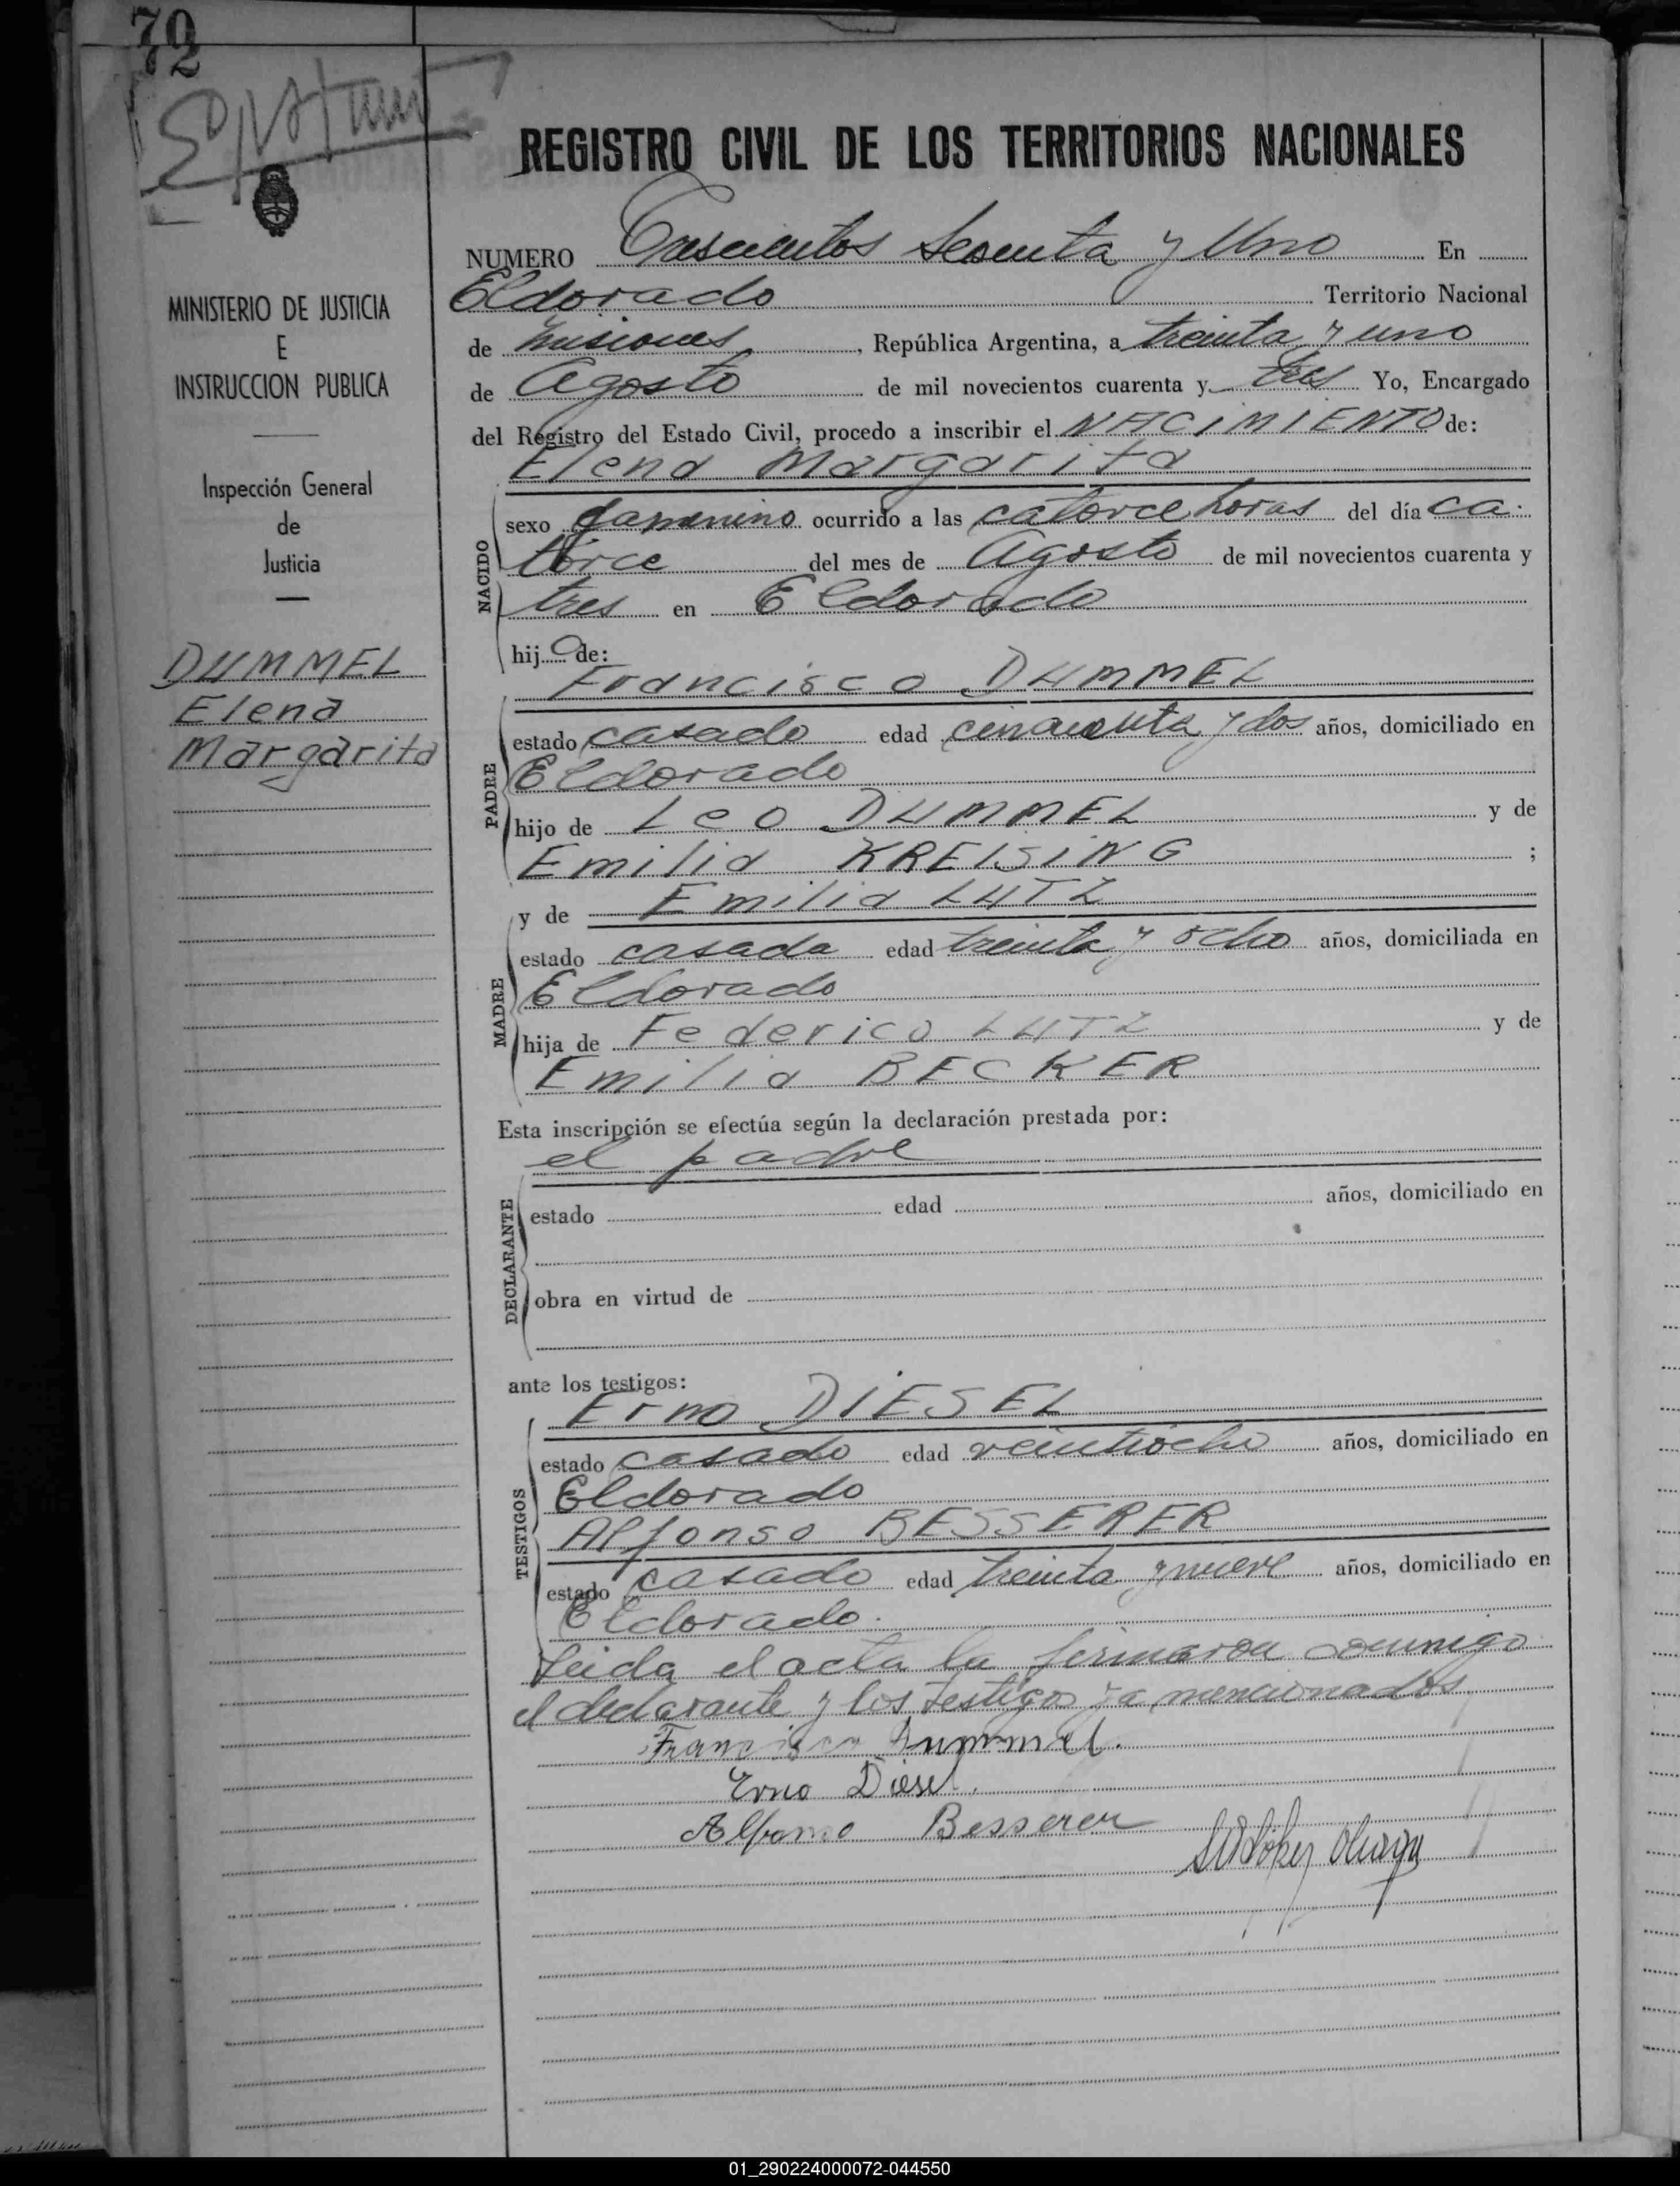 70
72
REGISTRO CIVIL DE LOS TERRITORIOS NACIONALES
NUMERO Trescientos Sesenta y Uno En
Eldorado Territorio Nacional
de Misiones, República Argentina, a treinta y uno
de Agosto de mil novecientos cuarenta y tres Yo, Encargado
del Registro del Estado Civil, procedo a inscribir el NACIMIENTO de:
Elena Margarita
MINISTERIO DE JUSTICIA
E
INSTRUCCION PUBLICA
Inspección General
de
Justicia
DUMMEL
Elena
Margarita
NACIDO
sexo famenino ocurrido a las catorce horas del día ca-
torce del mes de Agosto de mil novecientos cuarenta y
tres en Eldorado
hija de:
Francisco DUMMEL
PADRE
estado casado edad cincuenta y dos años, domiciliado en
Eldorado
hijo de Leo DUMMEL y de
Emilia KREISING ;
y de Emilia LUTZ
MADRE
estado casada edad treinta y ocho años, domiciliada en
Eldorado
hija de Federico LUTZ y de
Emilia BECKER
Esta inscripción se efectúa según la declaración prestada por:
el padre
DECLARANTE
estado edad años, domiciliado en
obra en virtud de
ante los testigos:
Erno DIESEL
TESTIGOS
estado casado edad veintiocho años, domiciliado en
Eldorado
Alfonso BESSERER
estado casado edad treinta y nueve años, domiciliado en
Eldorado.
Leida el acta la firmaron conmigo
el declarante y los testigos ya mencionados
Francisco Dummel.
Erno Diesel.
Alfonso Besserer
01_290224000072-044550